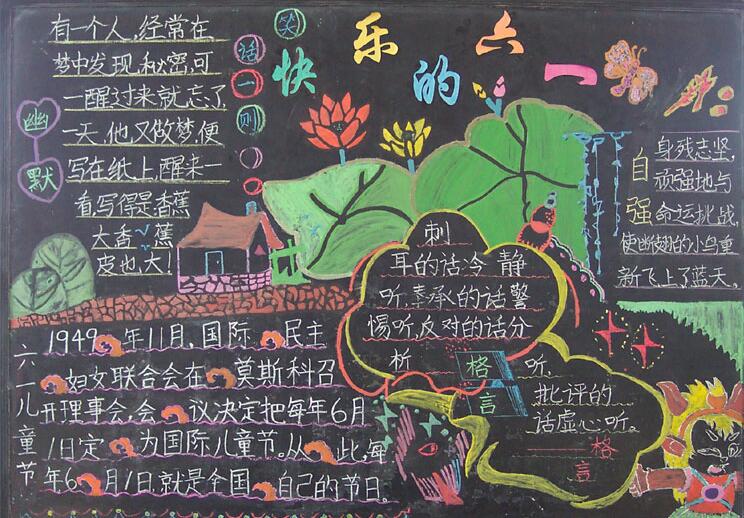 快乐的六一
笑话一则
幽默
有一个人,经常在
梦中发现秘密,可
一醒过来就忘了,
一天,他又做梦,便
写在纸上,醒来一
看,写得是:香蕉
大香蕉
皮也大!
自强
身残志坚,
顽强地与
命运挑战,
使断翅的小鸟重
新飞上了蓝天。
刺
耳的话冷静
听,奉承的话警
惕听,反对的话分
析听,
格言
批评的
话虚心听。
格言
六一儿童节
1949年11月,国际民主
妇女联合会在莫斯科召
开理事会,会议决定把每年6月
1日定为国际儿童节。从此,每
年6月1日,就是全国自己的节日。